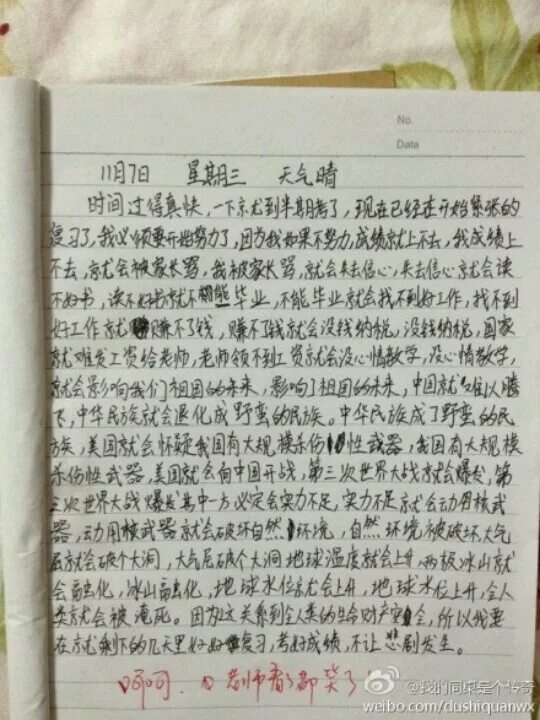 No.
Data
11月7日 星期三 天气晴
时间过得真快,一下就到半期考了,现在已经在开始紧张的
复习了,我必须要开始努力了,因为我如果不努力,成绩就上不去,我成绩上
不去,就会被家长骂,我被家长骂,就会失去信心,失去信心就会读
不好书,读不好书就不能毕业,不能毕业就会找不到好工作,找不到
好工作就赚不了钱,赚不了钱就会没钱纳税,没钱纳税,国家
就难发工资给老师,老师领不到工资就会没心情教学,没心情教学,
就会影响我们祖国的未来,影响了祖国的未来,中国就难以腾
飞,中华民族就会退化成野蛮的民族。中华民族成了野蛮的民
族,美国就会怀疑我国有大规模杀伤性武器,我国有大规模
杀伤性武器,美国就会向中国开战,第三次世界大战就会爆发,第
三次世界大战爆发其中一方必定会实力不足,实力不足就会动用核武
器,动用核武器就会破坏自然环境,自然环境被破坏,大气
层就会破个大洞,大气层破个大洞地球温度就会上升,两极冰山就
会融化,冰山融化,地球水位就会上升,地球水位上升,全人
类就会被淹死。因为这关系到全人类的生命财产安全,所以我要
在就剩下的几天里好好复习,考好成绩,不让悲剧发生。
呵呵, 老师看了都笑了
@我的同桌是个传奇
weibo.com/dushiquanwx